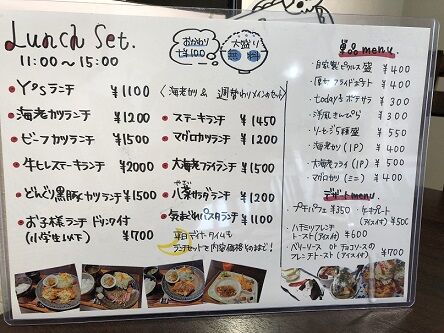 Lunch Set.
11:00〜15:00
おかわり
+¥100
大盛り
無料
(海老カツ & 週替わりメインのセット)
ランチ ¥1100
海老カツランチ ¥1200
ビーフカツランチ ¥1500
牛ヒレステーキランチ ¥2000
どんぐり黒豚カツランチ ¥1500
お子様ランチ ドリンク付
(小学生以下) ¥700
ステーキランチ ¥1450
マグロカツランチ ¥1200
大海老フライランチ ¥1500
ランチ ¥1200
気まぐれパスタランチ ¥1100
平日ディナータイムも
ランチセットで内容価格そのまま!
単品menu.
・自家製ピクルス盛 ¥400
・厚切フライドポテト ¥400
・todayポテサラ ¥300
・洋風きんぴら ¥300
・ソーセージ5種盛 ¥550
・海老カツ(1P) ¥400
・大海老フライ(1P) ¥500
・マグロカツ(ミニ) ¥400
デザートmenu
・プチパフェ ¥350
・ケーキプレート
(アイス付) ¥500
・ハチミツフレンチ
トースト(アイス付) ¥600
・ベリーソース or チョコソースの
フレンチトースト(アイス付) ¥700